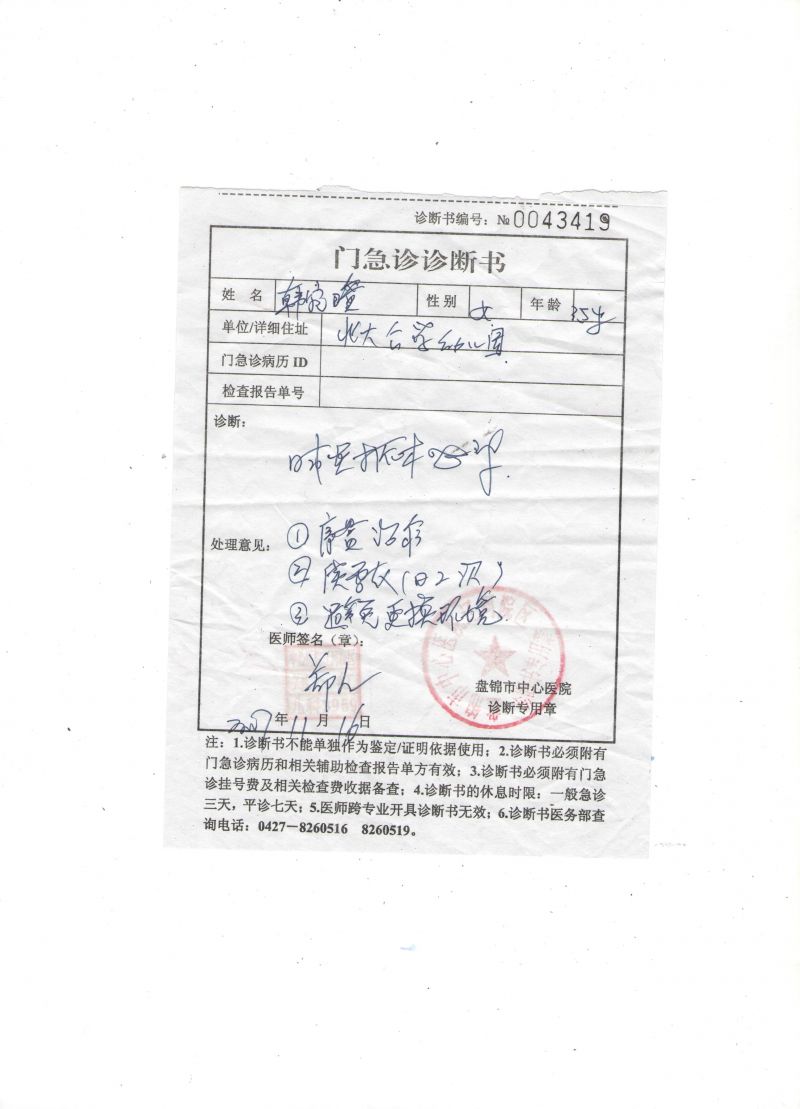 诊断书编号：№0043419
门急诊诊断书
姓 名 韩
性别 女
年龄 3.5岁
单位/详细住址 北大公学幼儿园
门急诊病历 ID
检查报告单号
诊断：
处理意见：①
② (日2次)
③ 避免更换环境.
医师签名（章）：
盘锦市中心医院
诊断专用章
年 11 月 16 日
注：1.诊断书不能单独作为鉴定/证明依据使用；2.诊断书必须附有
门急诊病历和相关辅助检查报告单方有效；3.诊断书必须附有门急
诊挂号费及相关检查费收据备查；4.诊断书的休息时限：一般急诊
三天，平诊七天；5.医师跨专业开具诊断书无效；6.诊断书医务部查
询电话：0427－8260516 8260519。